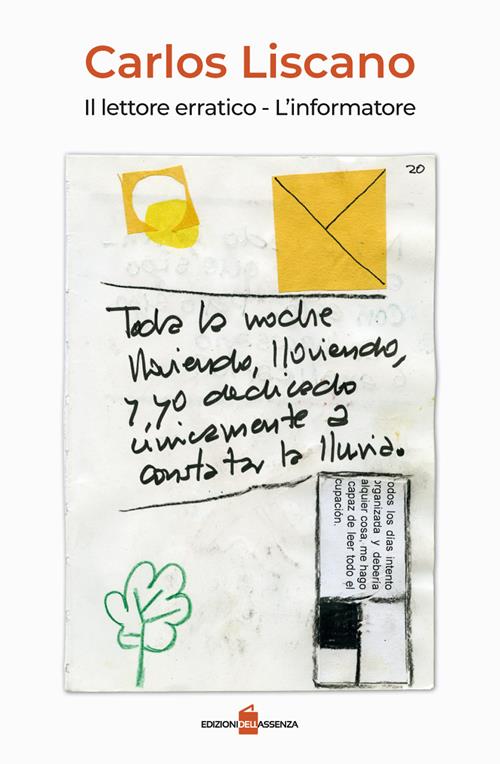 Carlos Liscano
Il lettore erratico - L'informatore
20
Toda la noche
lloviendo, lloviendo,
y yo dedicado
únicamente a
constatar la lluvia.
odos los días intento
organizada y debería
alquier cosa, me hago
capaz de leer todo el
cupación.
EDIZIONIDELLASSENZA